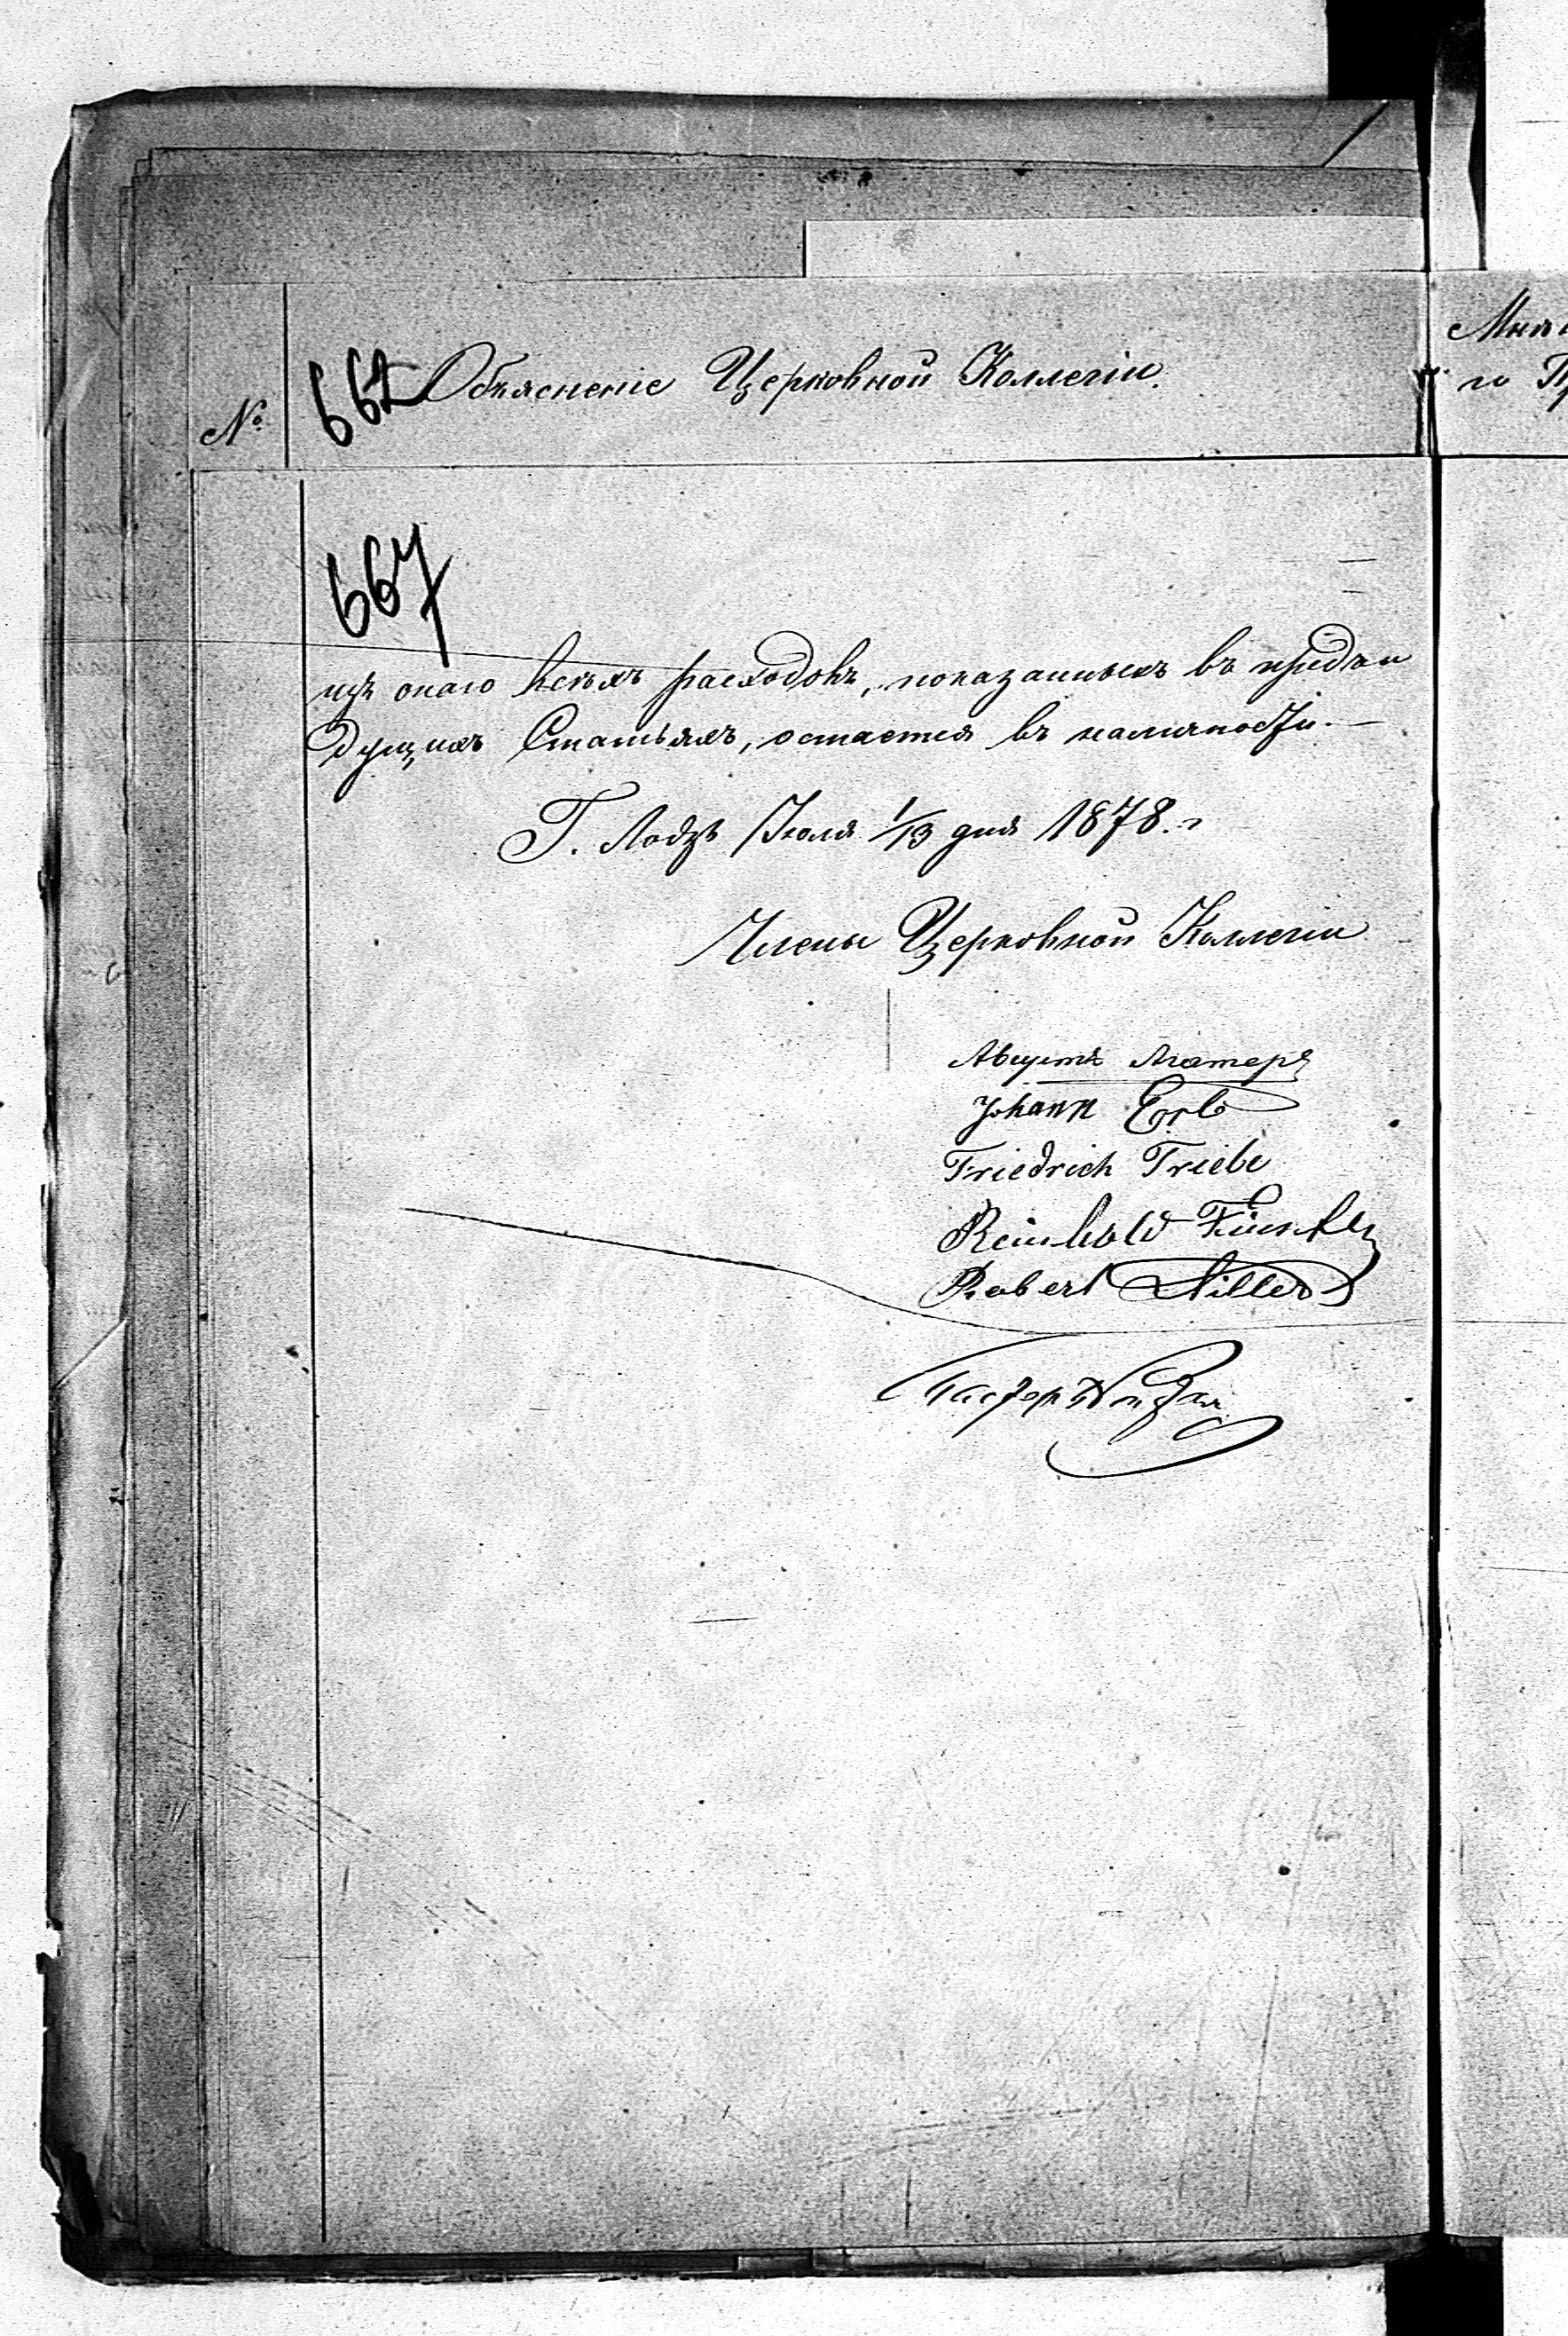 №
662 Объясненіе Церковной Коллегіи.
667
изъ онаго всѣхъ расходовъ, показанныхъ въ предъи
дущихъ Статьяхъ, остается въ наличности. —
Г. Лодзь Іюля 1/13 дня 1878. г
Члены Церковной Коллегіи
Августъ
Johann Erb
Friedrich Triebe
Reinhold
Robert
Пасторъ